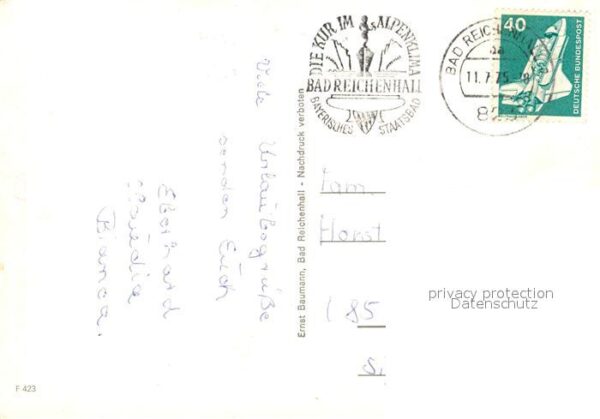 DIE KUR IM ALPENKLIMA
BAD REICHENHALL
BAYERISCHES STAATSBAD
BAD REICHENHALL
11.7.75
40
DEUTSCHE BUNDESPOST
Viele Urlaubsgrüße
senden Euch
Eberhard
Claudia
Bianca.
Ernst Baumann, Bad Reichenhall - Nachdruck verboten
Fam.
Horst
85
privacy protection
Datenschutz
F 423